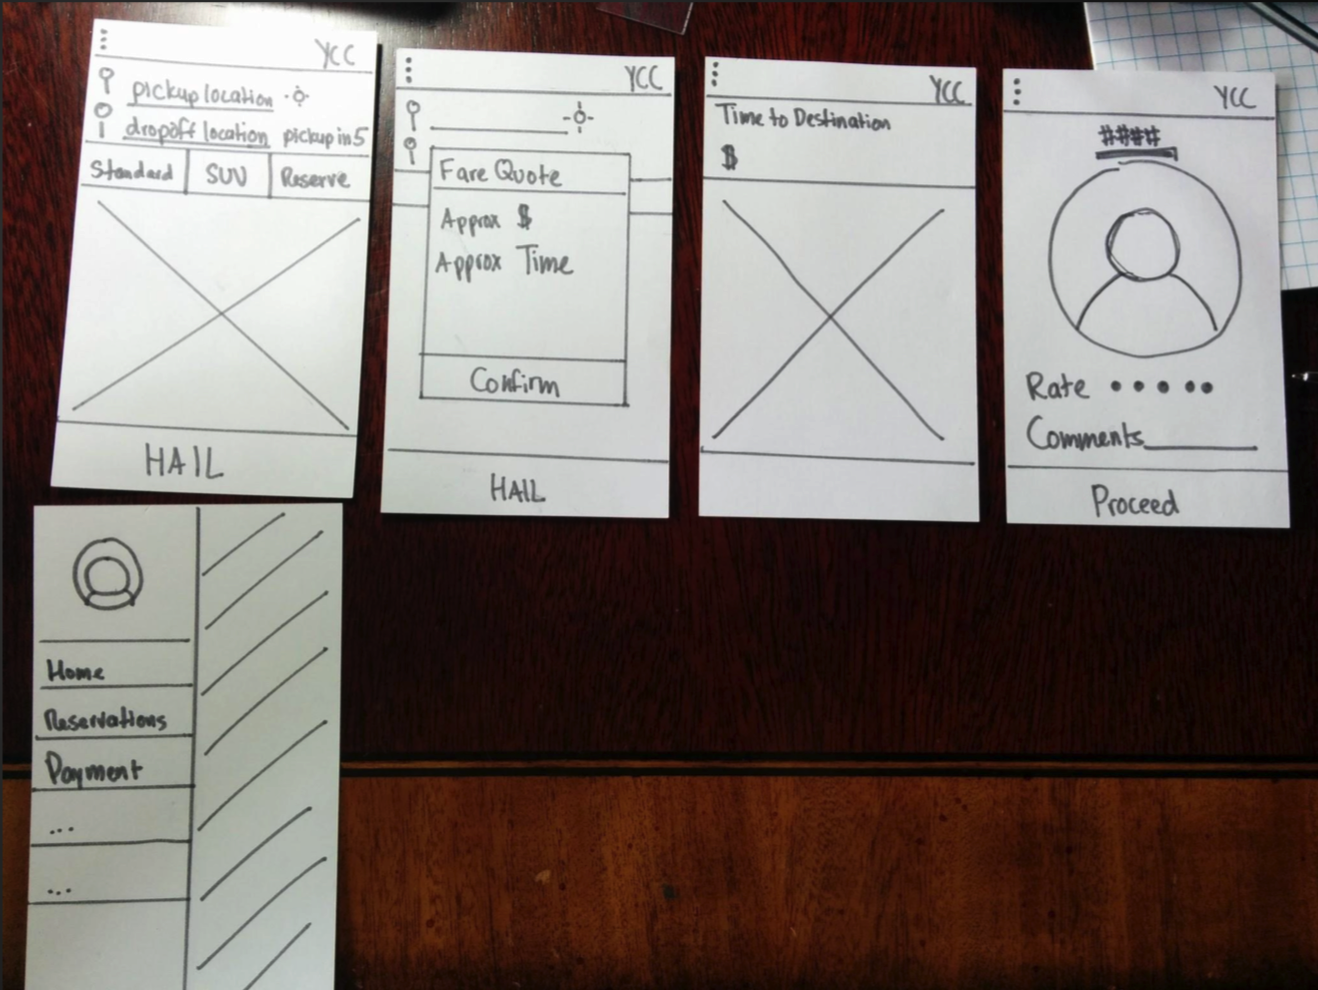 YCC
pickup location
dropoff location pickup in 5
Standard SUV Reserve
HAIL
YCC
Fare Quote
Approx $
Approx Time
Confirm
HAIL
YCC
Time to Destination
$
YCC
####
Rate • • • • •
Comments
Proceed
Home
Reservations
Payment
...
...